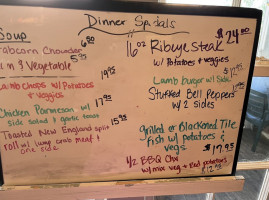 Dinner Specials
Soup
6.50
crabcorn Chowder
5.95
n & Vegetable
19.95
Lamb Chops w/ Potatoes
& veggies
Chicken Parmesan w/ 17.95
side salad & garlic toast
Toasted New England split 15.95
roll w/ lump crab meat &
one side
$24.00
16oz Ribeye Steak
w/ Potatoes & veggies
Lamb burger w/ side
Stuffed Bell Peppers
w/ 2 sides
Grilled or Blackened Tile
fish w/ potatoes &
vegs $17.95
1/2 BBQ Chx
w/ mix veg & Red potatoes